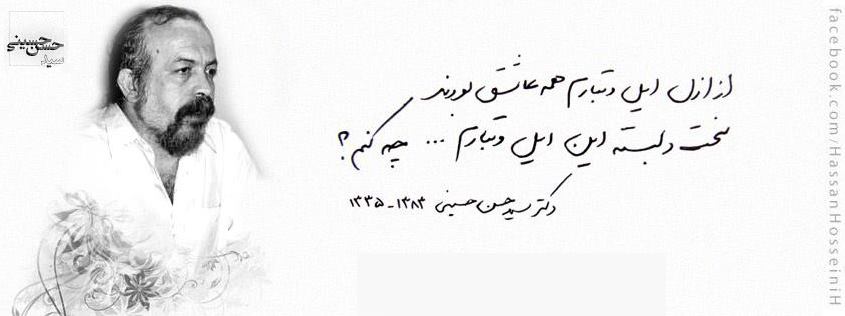 حسن حسینی
سید
از ازل ایل و تبارم همه عاشق بودند
سخت دلبسته این ایل و تبارم ... چه کنم؟
دکتر سید حسن حسینی ۱۳۸۳-۱۳۳۵
facebook.com/HassanHosseiniH